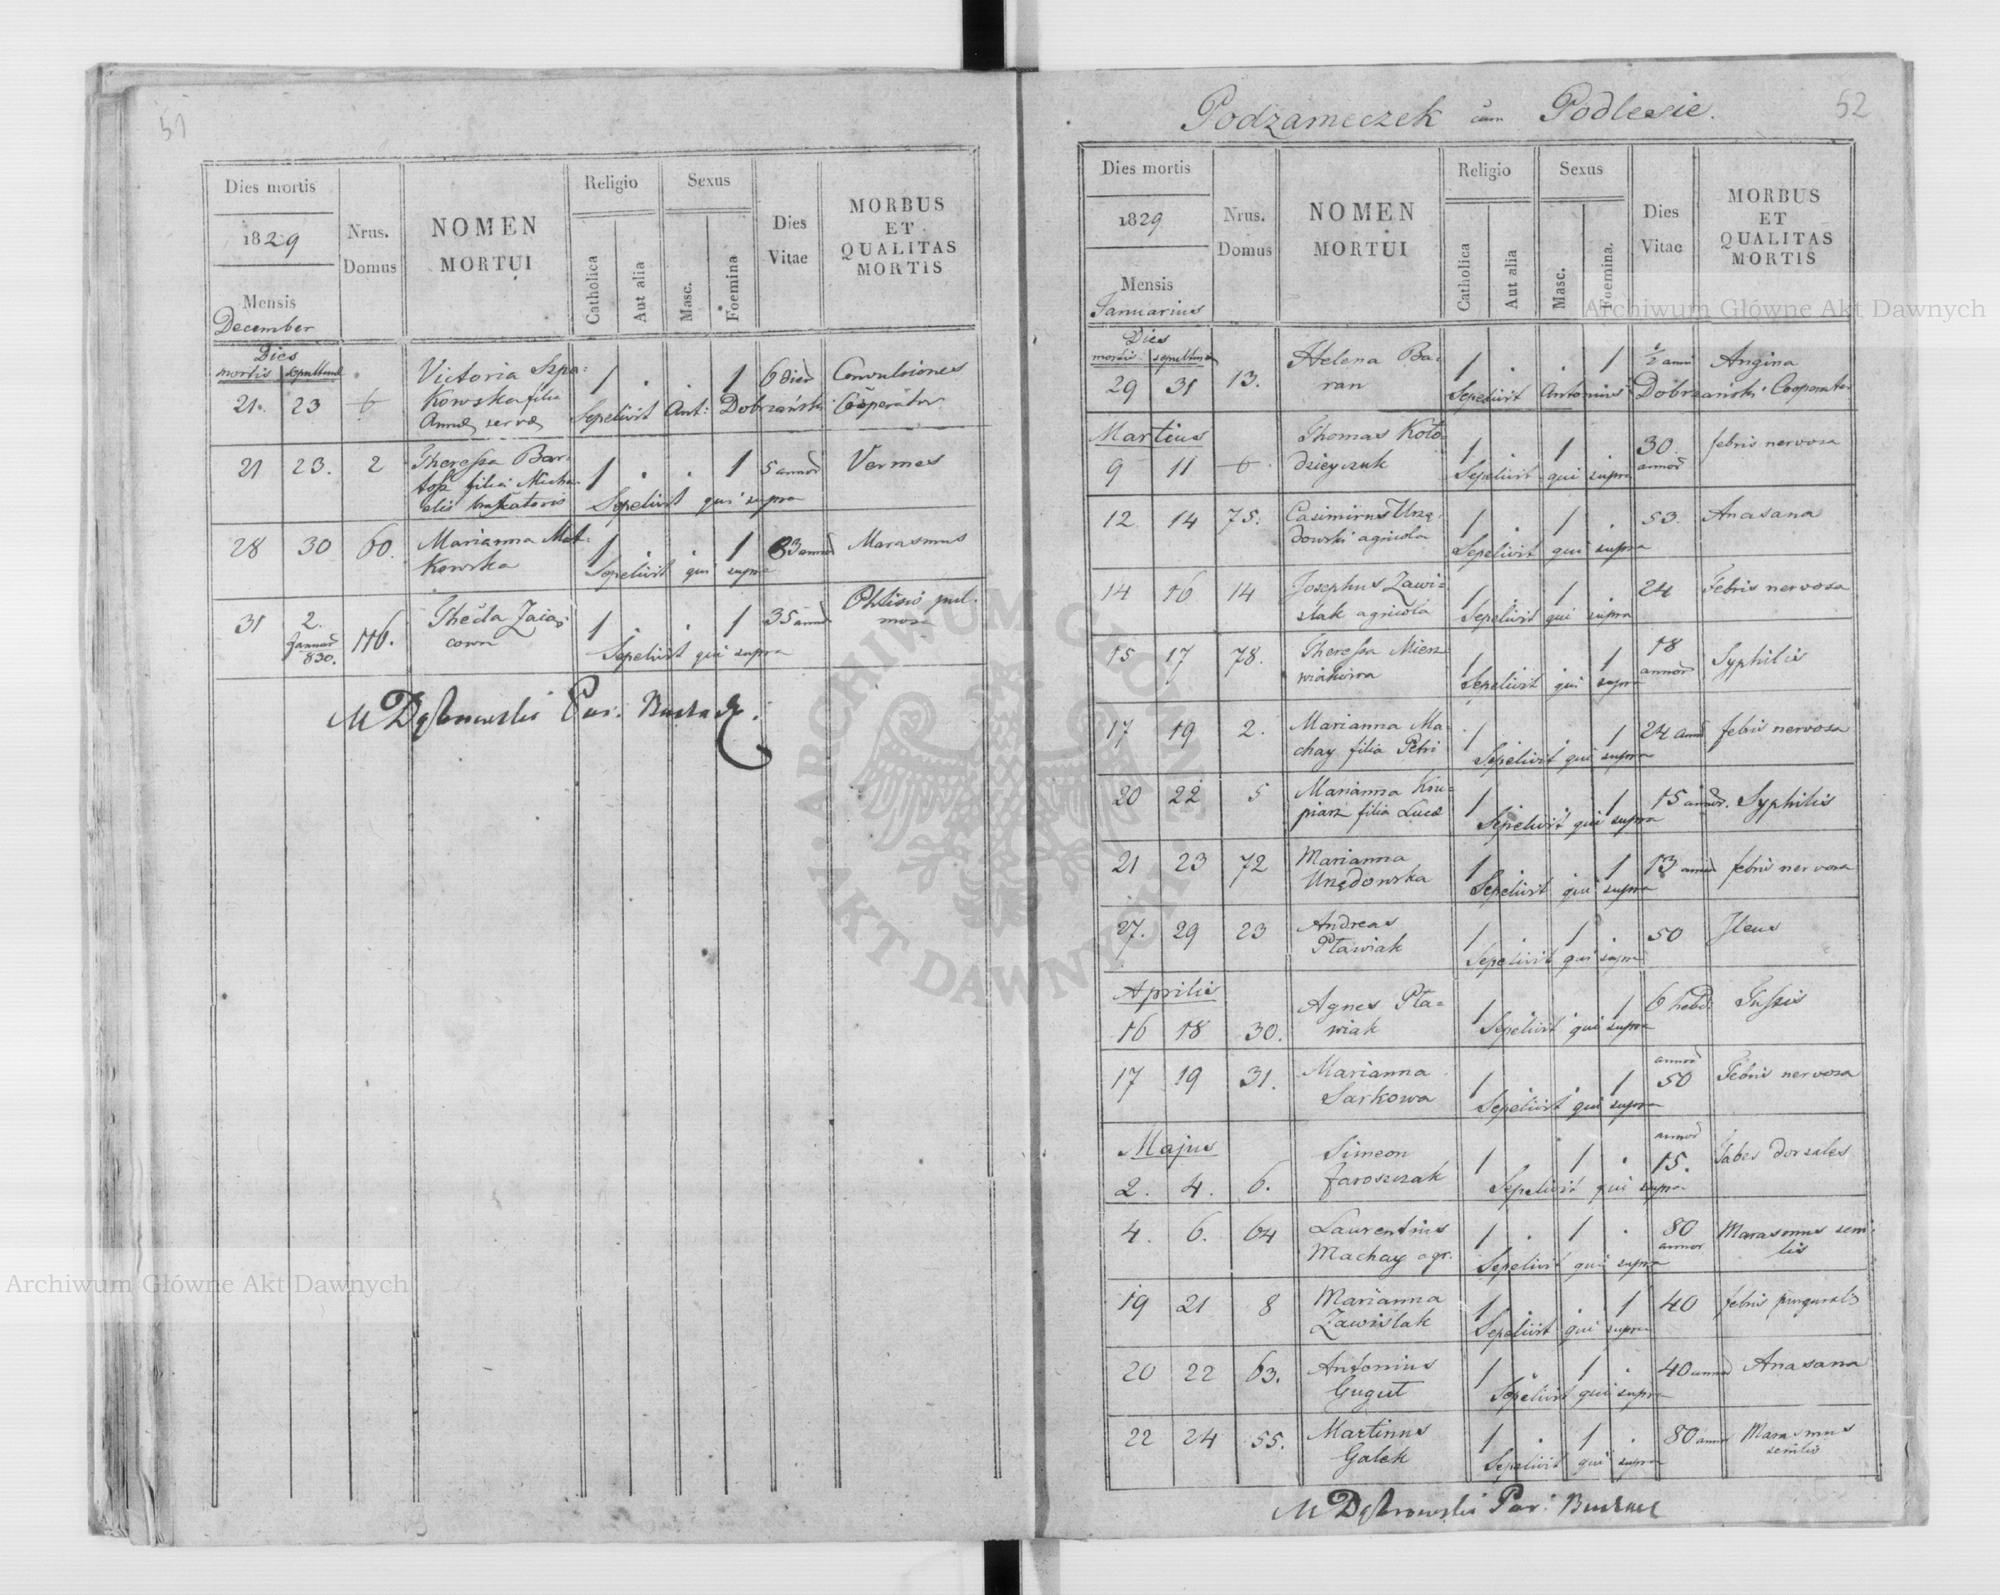 51
Dies mortis
1829
Mensis
December
Nrus.
Domus
NOMEN
MORTUI
Religio
Catholica
Aut alia
Sexus
Masc.
Foemina
Dies
Vitae
MORBUS
ET
QUALITAS
MORTIS
Dies
mortis sepulturae
21. 23 6 Victoria Szpa=
kowska filia
Annae servae
1 . . 1 6 dier Convulsiones
Sepelivit Ant: Dobrzański Cooperator
21 23. 2 Theressa Bar=
filia Micha=
elis
1 . . 1 5 annor Vermes
Sepelivit qui supra
28 30 60. Marianna Mat=
kowska
1 . . 1 83 annor Marasmus
Sepelivit qui supra
31 2.
Januar
830.
116. Thecla Zaiąc
cowa
1 . . 1 35 annor Phtisis pul=
mon
Sepelivit qui supra
M Dąbrowski Par: Buczacz.
Podzameczek cum Podlesie.
52
Dies mortis
1829
Mensis
Januarius
Nrus.
Domus
NOMEN
MORTUI
Religio
Catholica
Aut alia
Sexus
Masc.
Foemina.
Dies
Vitae
MORBUS
ET
QUALITAS
MORTIS
Dies
mortis sepulturae
29 31 13. Helena Ba=
ran
1 . . 1 1/2 anni Angina
Sepelivit Antonius Dobrzański Cooperator
Martius
9 11 6. Thomas Koło=
dzieyczuk
1 . 1 . 30. annor febris nervosa
Sepelivit qui supra
12 14 75. Casimirus Urzę=
dowski agricola
1 . 1 . 53. Anasana
Sepelivit qui supra
14 16 14 Josephus Zawi=
slak agricola
1 . 1 . 24 Febris nervosa
Sepelivit qui supra
15 17 78. Theressa Mierz
wiakowa
1 . . 1 18 annor Syphilis
Sepelivit qui supra
17 19 2. Marianna Ma=
chay filia Petri
1 . . 1 24 annor febris nervosa
Sepelivit qui supra
20 22 5 Marianna Kru=
piarz filia Lucae
1 . . 1 15 annor. Syphilis
Sepelivit qui supra
21 23 72 Marianna
Urzędowska
1 . . 1 13 annor febris nervosa
Sepelivit qui supra
27. 29 23 Andreas
Pławiak
1 . 1 . 50 Ileus
Sepelivit qui supra
Aprilis
16 18 30. Agnes Pła=
wiak
1 . . 1 6 hebd: Tussis
Sepelivit qui supra
17 19 31. Marianna
Sarkowa
1 . . 1 annor 50 Febris nervosa
Sepelivit qui supra
Majus
2. 4. 6. Simeon
Jaroszczak
1 1 . annor 15. Tabes dorsales
Sepelivit qui supra
4. 6. 64 Laurentius
Machay agr.
1 . 1 . 80 annor Marasmus seni=
lis
Sepelivit qui supra
19 21 8 Marianna
Zawislak
1 . . 1 40 febris
Sepelivit qui supra
20 22 63. Antonius
Gugut
1 1 . 40 annor Anasana
Sepelivit qui supra
22 24 55. Martinus
Gałek
1 . 1 . 80 annor Marasmus
senilis
Sepelivit qui supra
M Dąbrowski Par: Buczacz
Archiwum Główne Akt Dawnych
Archiwum Główne Akt Dawnych
ARCHIWUM GŁÓWNE
AKT DAWNYCH